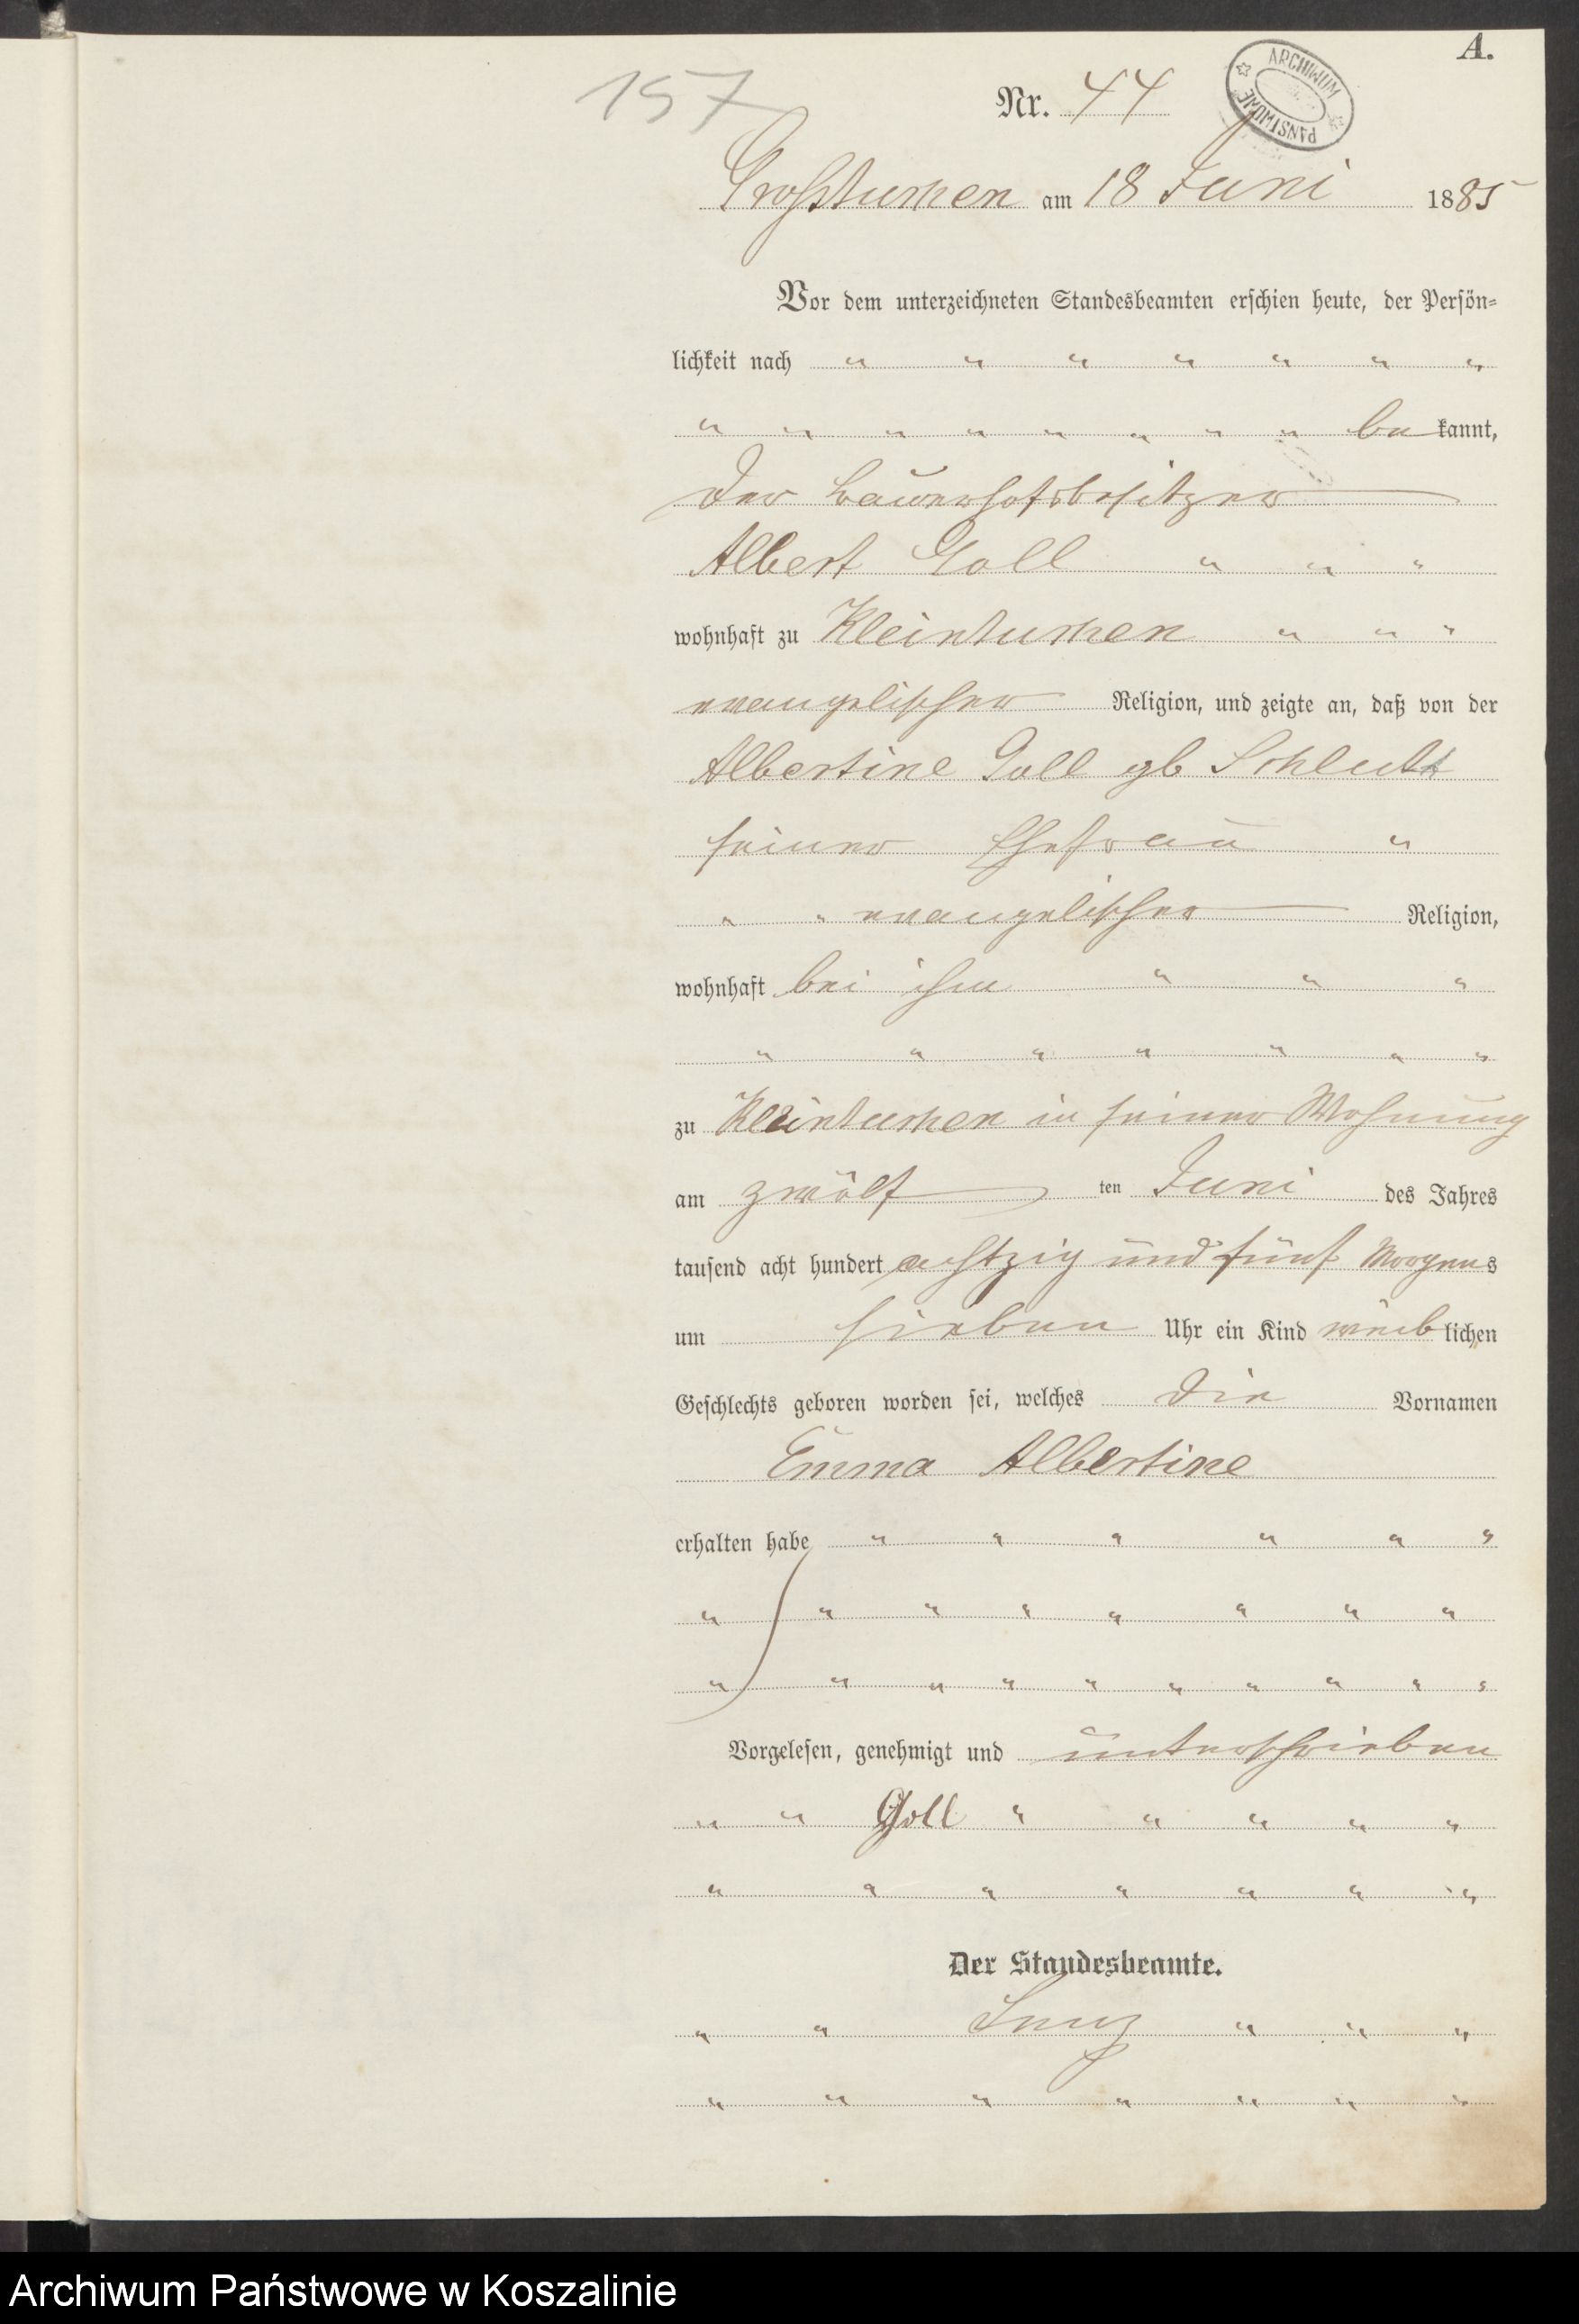 A.
157
Nr. 44
ARCHIWUM PAŃSTWOWE
Großtuchen am 18 Juni 1885
Vor dem unterzeichneten Standesbeamten erschien heute, der Persön-
lichkeit nach " " " " " " "
" " " " " " " " be kannt,
der Bauerhofsbesitzer
Albert Goll " " "
wohnhaft zu Kleintuchen " " "
evangelischer Religion, und zeigte an, daß von der
Albertine Goll gb Schlecht
seiner Ehefrau "
" " evangelischer Religion,
wohnhaft bei ihm " " "
" " " " " " "
zu Kleintuchen in seiner Wohnung
am zwölf ten Juni des Jahres
tausend acht hundert achtzig und fünf Morgens
um sieben Uhr ein Kind weib lichen
Geschlechts geboren worden sei, welches die Vornamen
Emma Albertine
erhalten habe " " " " " "
" " " " " " " "
" " " " " " " " " "
Vorgelesen, genehmigt und unterschrieben
" " Goll " " " " "
" " " " " " "
Der Standesbeamte.
" " " " "
" " " " " " "
Archiwum Państwowe w Koszalinie